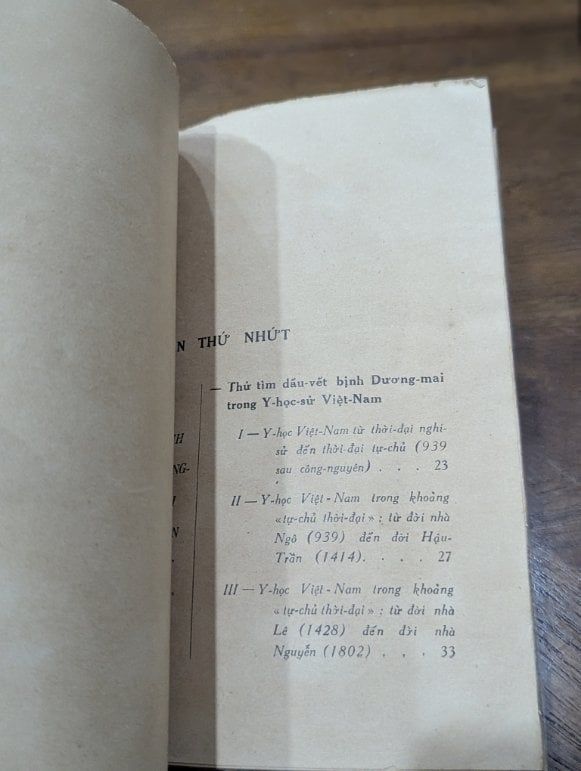 N THỨ NHỨT
— Thử tìm dấu-vết bịnh Dương-mai
trong Y-học-sử Việt-Nam
I — Y-học Việt-Nam từ thời-đại nghi-
sử đến thời-đại tự-chủ (939
sau công-nguyên) . . . 23
II — Y-học Việt-Nam trong khoảng
«tự-chủ thời-đại» : từ đời nhà
Ngô (939) đến đời Hậu-
Trần (1414). . . . 27
III — Y-học Việt-Nam trong khoảng
«tự-chủ thời-đại» : từ đời nhà
Lê (1428) đến đời nhà
Nguyễn (1802) . . . 33
H
NG-
I
N